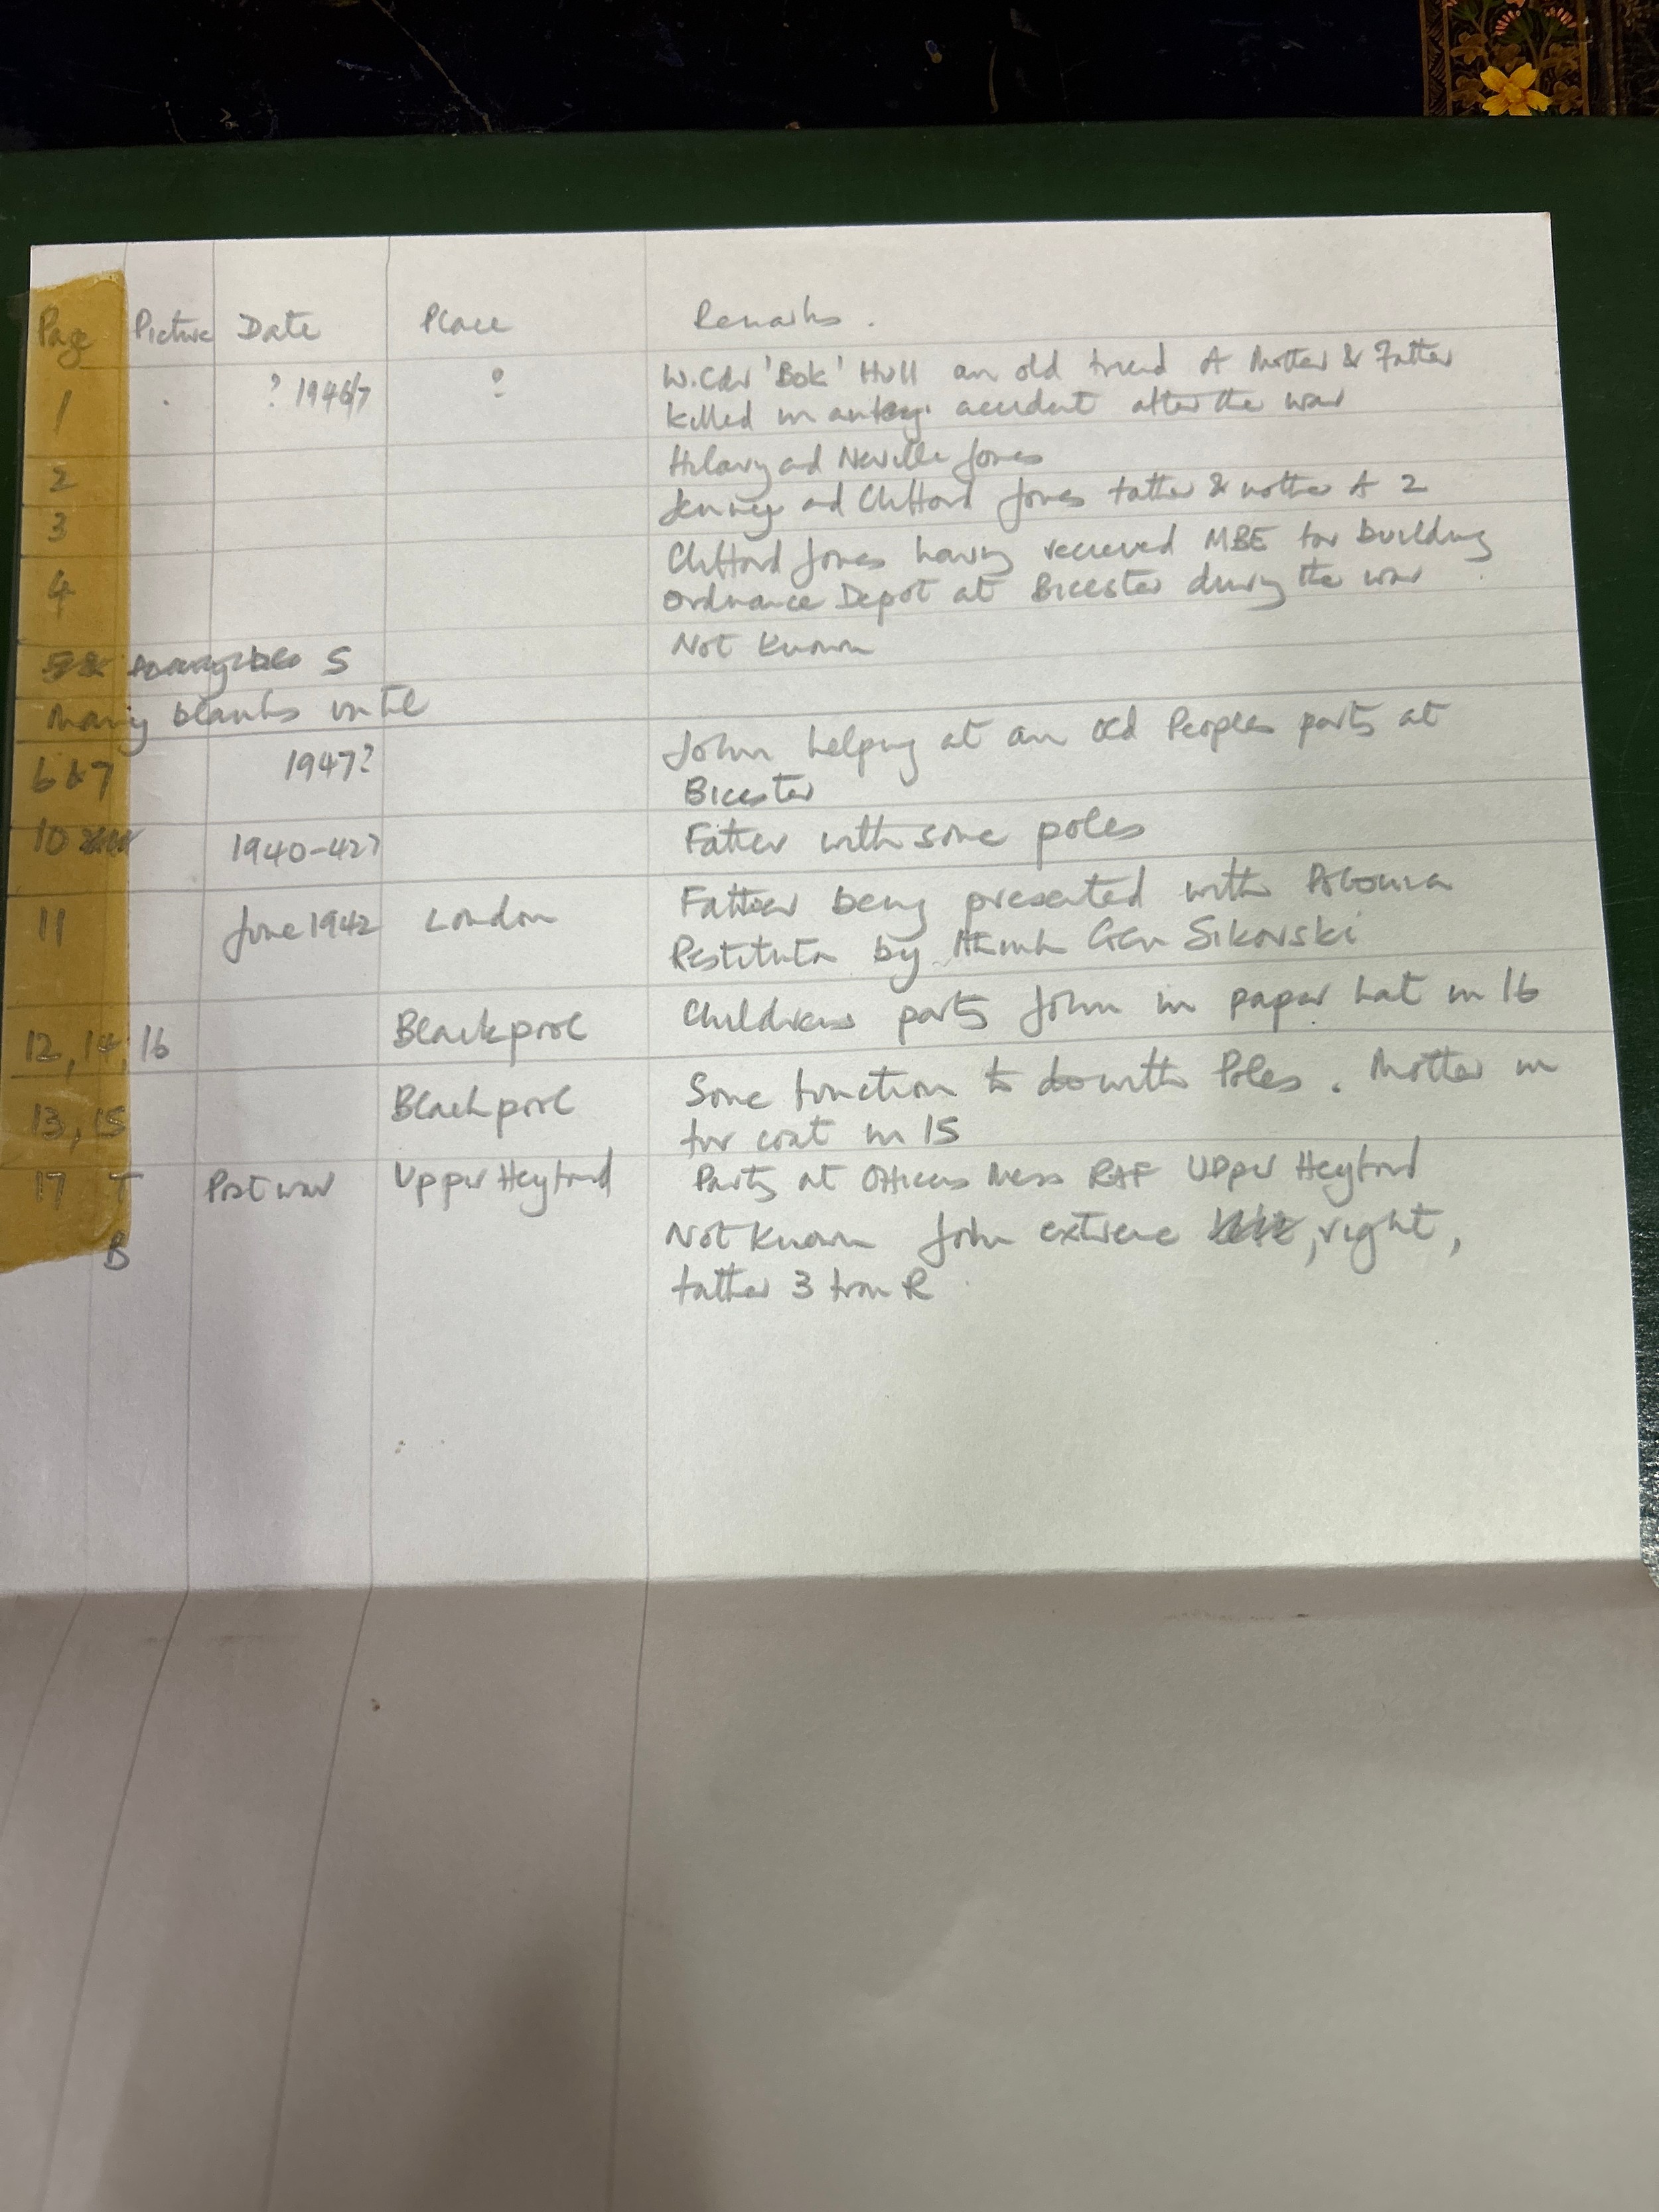 Page Picture Date Place Remarks.
1 ? 1946/7 ? W.Cdr 'Bok' Hull an old friend of Mother & Father
killed in accident after the war
2 Hilary and Neville Jones
3 and Clifford Jones father & mother of 2
4 Clifford Jones having recieved MBE for building
Ordnance Depot at Bicester during the war
5 Not Known
Many blanks until
6 & 7 1947? John helping at an Old Peoples party at
Bicester
10 1940-42? Father with some poles
11 June 1942 London Father being presented with Polonia
Restituta by Gen Sikorski
12, 14, 16 Blackpool Childrens party John in paper hat in 16
13, 15 Blackpool Some function to do with Poles. Mother in
fur coat in 15
17 T Post war Upper Heyford Party at Officers Mess RAF Upper Heyford
B Not Known John extreme right,
father 3 from R